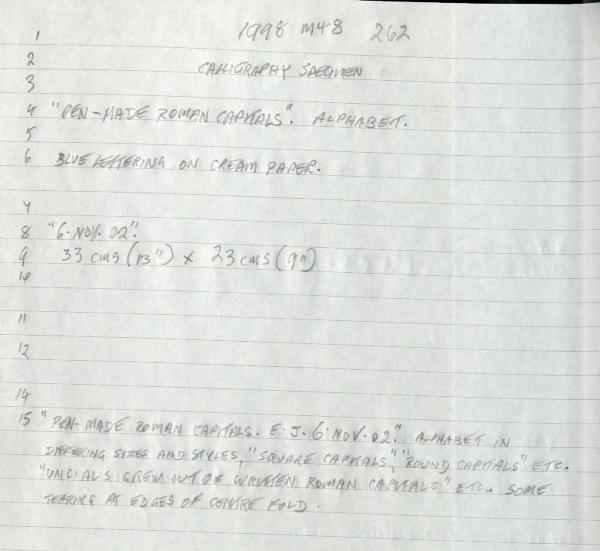 1998 M48 262
1
2 CALLIGRAPHY SPECIMEN
3
4 "PEN-MADE ROMAN CAPITALS". ALPHABET.
5
6 BLUE LETTERING ON CREAM PAPER.
7
8 "6. NOV. 02".
9 33 cms (13") x 23 cms (9")
10
11
12
14
15 "PEN-MADE ROMAN CAPITALS. E.J. 6. NOV. 02". ALPHABET IN
DIFFERING SIZES AND STYLES, "SQUARE CAPITALS", "ROUND CAPITALS" ETC.
"UNCIALS GREW OUT OF WRITTEN ROMAN CAPITALS" ETC. SOME
TEARING AT EDGES OF CENTRE FOLD.